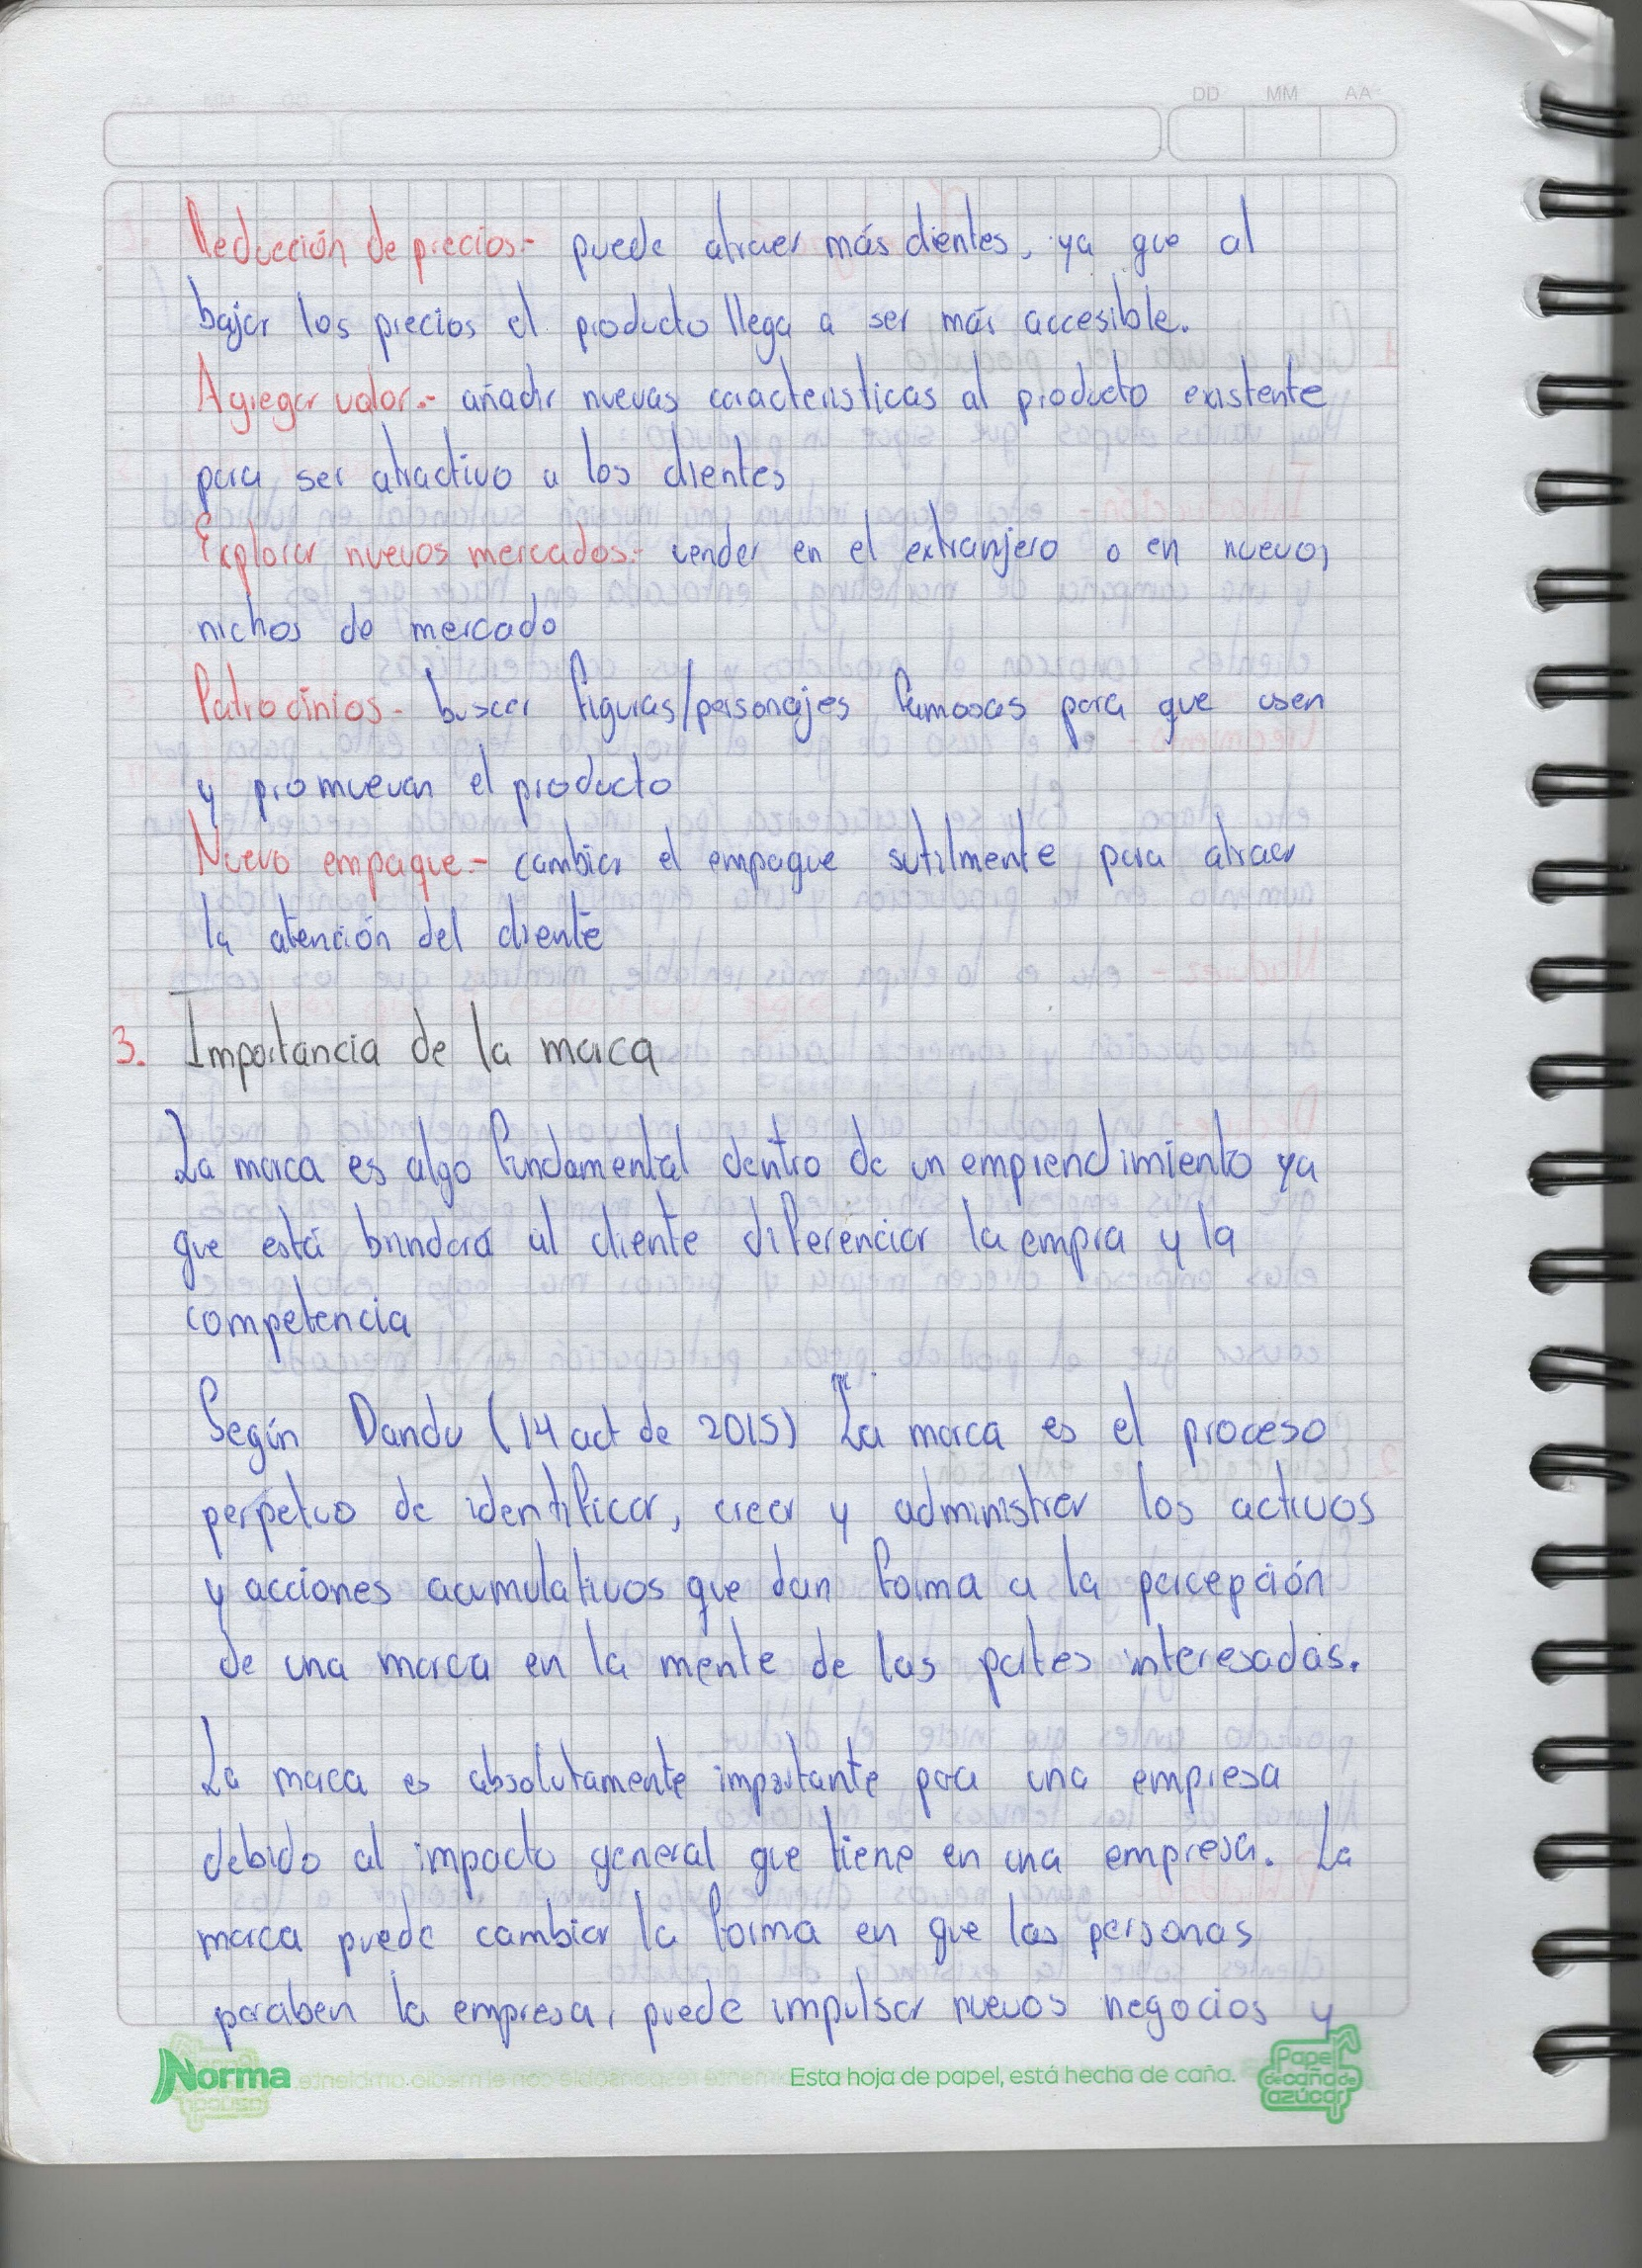 DD MM AA
Reducción de precios.- puede atraer más clientes, ya que al
bajar los precios el producto llega a ser más accesible.
Agregar valor.- añadir nuevas características al producto existente
para ser atractivo a los clientes
Explorar nuevos mercados.- vender en el extranjero o en nuevos
nichos de mercado
Patrocinios- buscar figuras/personajes famosas para que usen
y promuevan el producto
Nuevo empaque.- cambiar el empaque sutilmente para atraer
la atención del cliente
3. Importancia de la marca
La marca es algo fundamental dentro de un emprendimiento ya
que está brindará al cliente diferenciar la empra y la
competencia
Según Dandu (14 oct de 2015) La marca es el proceso
perpetuo de identificar, crear y administrar los activos
y acciones acumulativos que dan forma a la percepción
de una marca en la mente de las partes interesadas.
La marca es absolutamente importante para una empresa
debido al impacto general que tiene en una empresa. La
marca puede cambiar la forma en que las personas
paraben la empresa, puede impulsar nuevos negocios y
Norma
Esta hoja de papel, está hecha de caña.
Papel
de caña de
azúcar